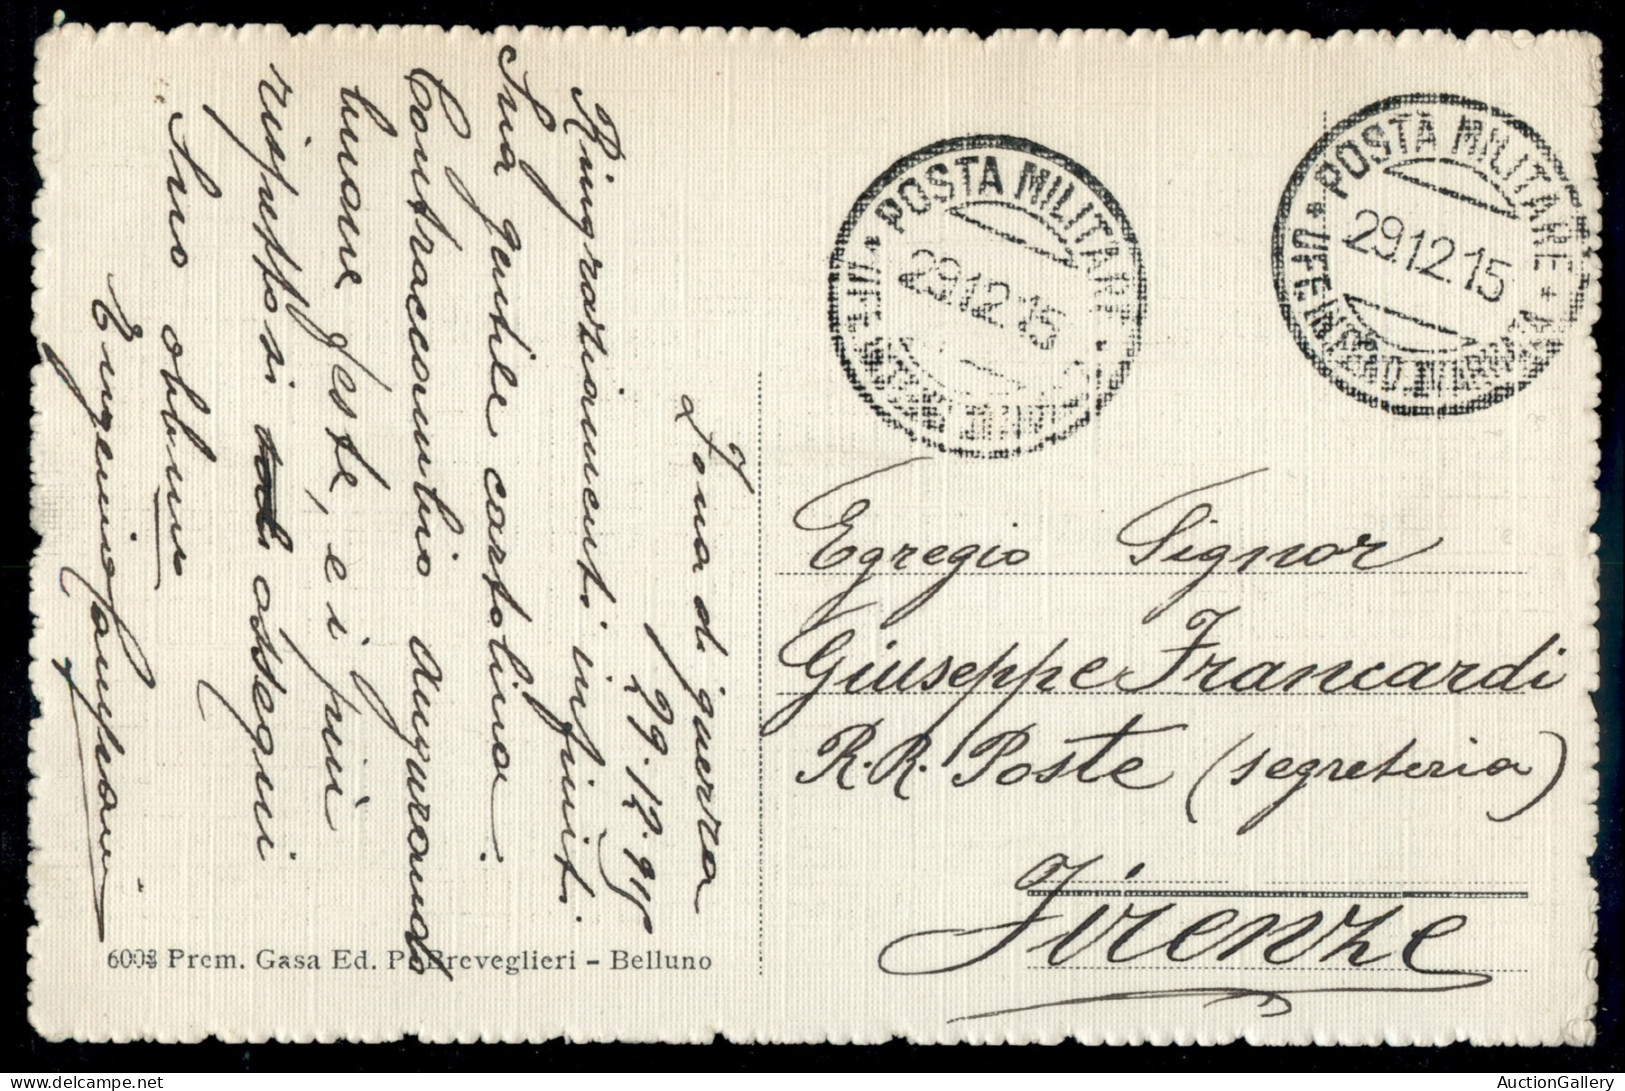 Zona di guerra
29.12.915
Ringraziamenti infiniti.
Sua gentile cartolina.
Contraccambio augurando
buone feste, e i più
rispettosi ossequi
Suo obb.mo
Eugenio Campani
6003 Prem. Casa Ed. P. Breveglieri - Belluno
POSTA MILITARE
29.12.15
POSTA MILITARE
29.12.15
Egregio Signor
Giuseppe Francardi
R.R. Poste (segreteria)
Firenze
AuctionGallery